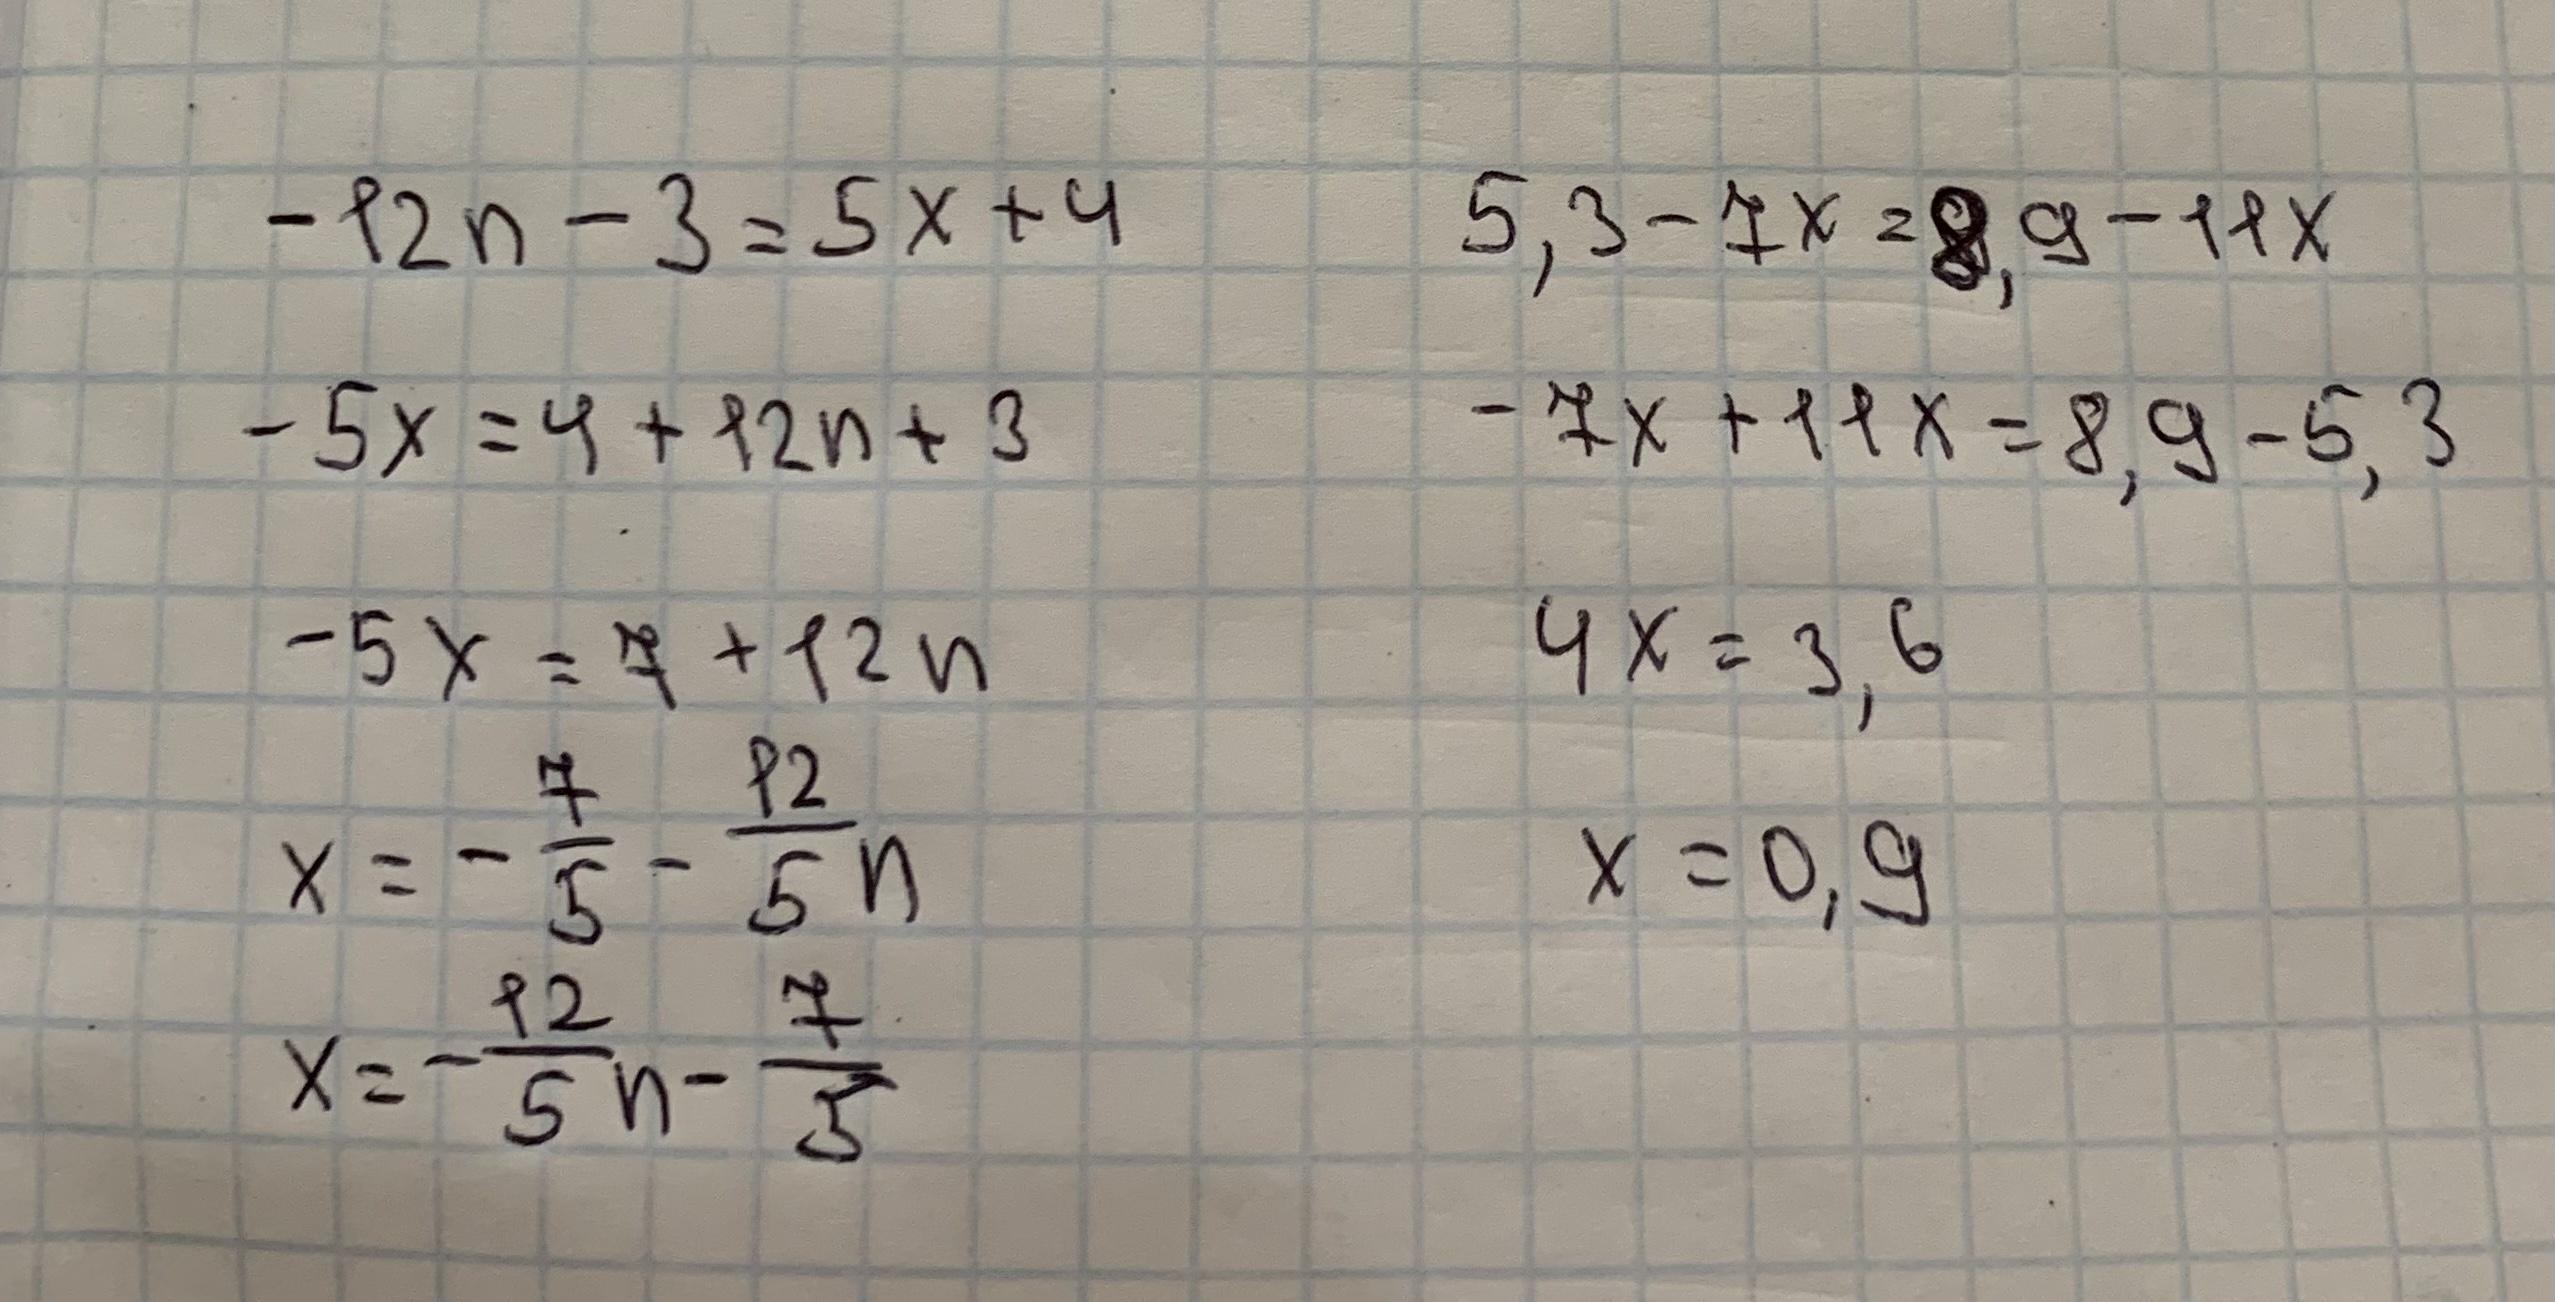 -12n - 3 = 5x + 4
-5x = 4 + 12n + 3
-5x = 7 + 12n
x = - 7/5 - 12/5 n
x = - 12/5 n - 7/5
5,3 - 7x = 8,9 - 11x
-7x + 11x = 8,9 - 5,3
4x = 3,6
x = 0,9